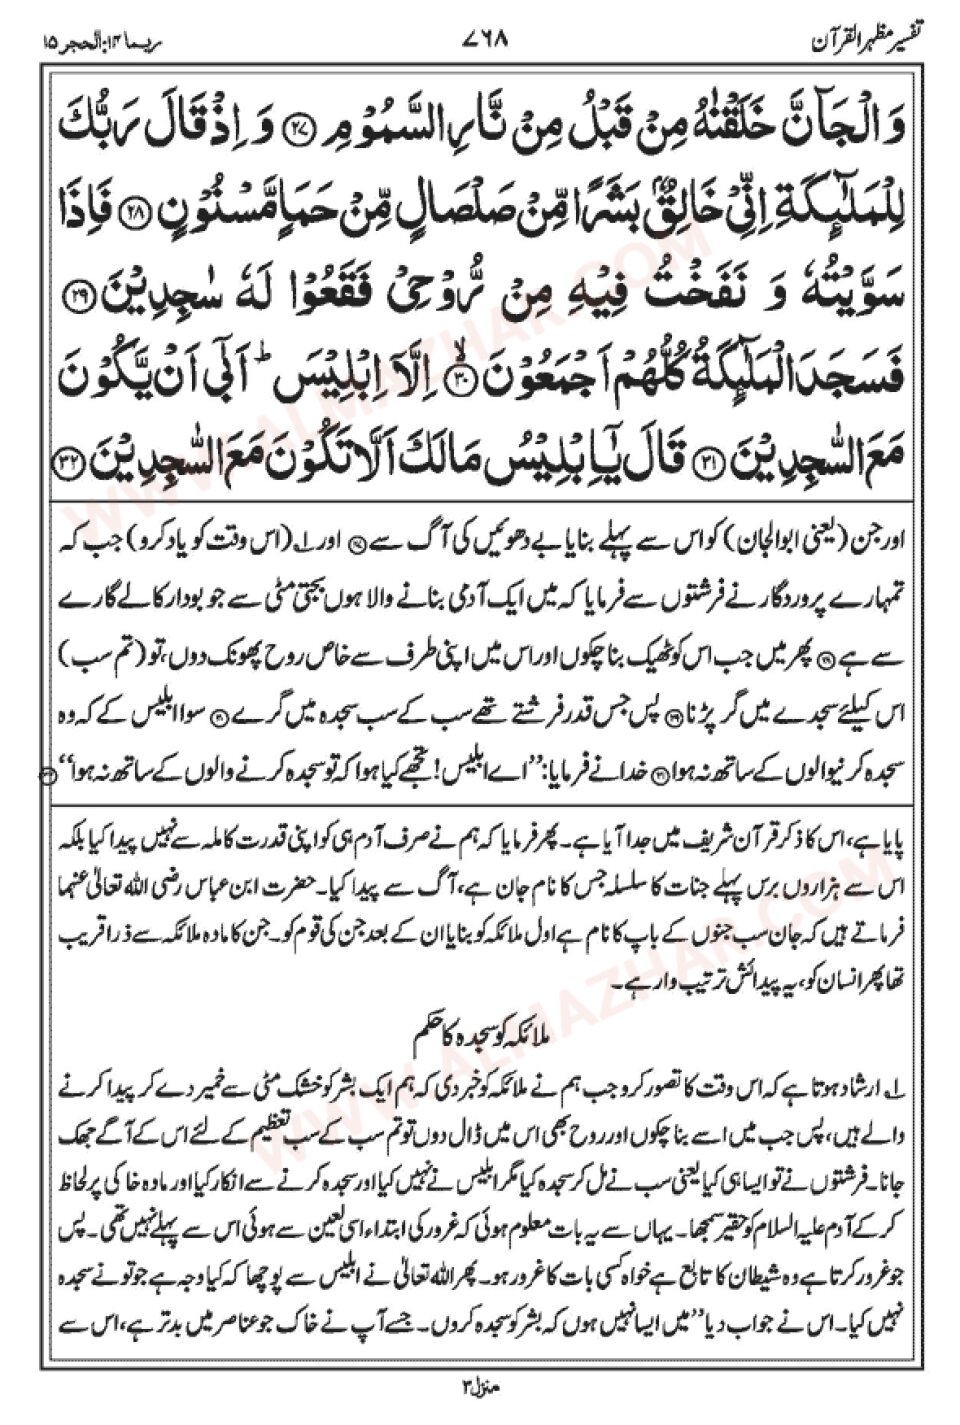 تفسیر مظہر القرآن
۷۶۸
ربما ۱۴: الحجر ۱۵
وَالْجَآنَّ خَلَقْنٰهُ مِنْ قَبْلُ مِنْ نَّارِ السَّمُوْمِ ﴿۲۷﴾ وَ اِذْ قَالَ رَبُّكَ
لِلْمَلٰٓئِكَةِ اِنِّیْ خَالِقٌۢ بَشَرًا مِّنْ صَلْصَالٍ مِّنْ حَمَاٍ مَّسْنُوْنٍ ﴿۲۸﴾ فَاِذَا
سَوَّیْتُهٗ وَ نَفَخْتُ فِیْهِ مِنْ رُّوْحِیْ فَقَعُوْا لَهٗ سٰجِدِیْنَ ﴿۲۹﴾
فَسَجَدَ الْمَلٰٓئِكَةُ كُلُّهُمْ اَجْمَعُوْنَ ﴿۳۰﴾ۙ اِلَّاۤ اِبْلِیْسَ ؕ اَبٰۤی اَنْ یَّكُوْنَ
مَعَ السّٰجِدِیْنَ ﴿۳۱﴾ قَالَ یٰۤاِبْلِیْسُ مَا لَكَ اَلَّا تَكُوْنَ مَعَ السّٰجِدِیْنَ ﴿۳۲﴾
اور جن (یعنی ابوالجان) کو اس سے پہلے بنایا بے دھوئیں کی آگ سے ﴿۲۷﴾ اور ۱؎ (اس وقت کو یاد کرو) جب کہ
تمہارے پروردگار نے فرشتوں سے فرمایا کہ میں ایک آدمی بنانے والا ہوں بجتی مٹی سے جو بودار کالے گارے
سے ہے ﴿۲۸﴾ پھر میں جب اس کو ٹھیک بنا چکوں اور اس میں اپنی طرف سے خاص روح پھونک دوں، تو (تم سب)
اس کیلئے سجدے میں گر پڑنا ﴿۲۹﴾ پس جس قدر فرشتے تھے سب کے سب سجدہ میں گرے ﴿۳۰﴾ سوا ابلیس کے کہ وہ
سجدہ کرنیوالوں کے ساتھ نہ ہوا ﴿۳۱﴾ خدا نے فرمایا: ”اے ابلیس! تجھے کیا ہوا کہ تو سجدہ کرنے والوں کے ساتھ نہ ہوا“ ﴿۳۲﴾
پایا ہے، اس کا ذکر قرآن شریف میں جدا آیا ہے۔ پھر فرمایا کہ ہم نے صرف آدم ہی کو اپنی قدرت کاملہ سے نہیں پیدا کیا بلکہ
اس سے ہزاروں برس پہلے جنات کا سلسلہ جس کا نام جان ہے، آگ سے پیدا کیا۔ حضرت ابن عباس رضی اللہ تعالیٰ عنہما
فرماتے ہیں کہ جان سب جنوں کے باپ کا نام ہے اول ملائکہ کو بنایا ان کے بعد جن کی قوم کو۔ جن کا مادہ ملائکہ سے ذرا قریب
تھا پھر انسان کو، یہ پیدائش ترتیب وار ہے۔
ملائکہ کو سجدہ کا حکم
۱؎ ارشاد ہوتا ہے کہ اس وقت کا تصور کرو جب ہم نے ملائکہ کو خبر دی کہ ہم ایک بشر کو خشک مٹی سے خمیر دے کر پیدا کرنے
والے ہیں، پس جب میں اسے بنا چکوں اور روح بھی اس میں ڈال دوں تو تم سب کے سب تعظیم کے لئے اس کے آگے جھک
جانا۔ فرشتوں نے تو ایسا ہی کیا یعنی سب نے مل کر سجدہ کیا مگر ابلیس نے نہیں کیا اور سجدہ کرنے سے انکار کیا اور مادہ خاکی پر لحاظ
کر کے آدم علیہ السلام کو حقیر سمجھا۔ یہاں سے یہ بات معلوم ہوئی کہ غرور کی ابتداء اسی لعین سے ہوئی اس سے پہلے نہیں تھی۔ پس
جو غرور کرتا ہے وہ شیطان کا تابع ہے خواہ کسی بات کا غرور ہو۔ پھر اللہ تعالیٰ نے ابلیس سے پوچھا کہ کیا وجہ ہے جو تو نے سجدہ
نہیں کیا۔ اس نے جواب دیا ”میں ایسا نہیں ہوں کہ بشر کو سجدہ کروں۔ جسے آپ نے خاک جو عناصر میں بدتر ہے، اس سے
منزل ۳
WWW.ALMAZHAR.COM
WWW.ALMAZHAR.COM